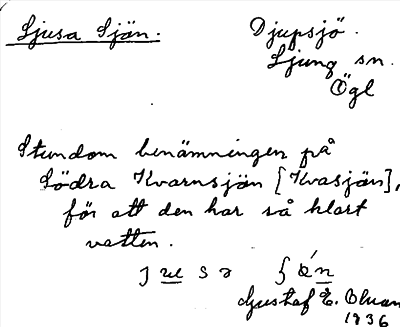 Ljusa Sjön. Djupsjö.
Ljung sn.
Ögl
Stundom benämningen på
Södra Kvarnsjön [Kvasjön],
för att den har så klart
vatten.
Gustaf E. Oluan
1936